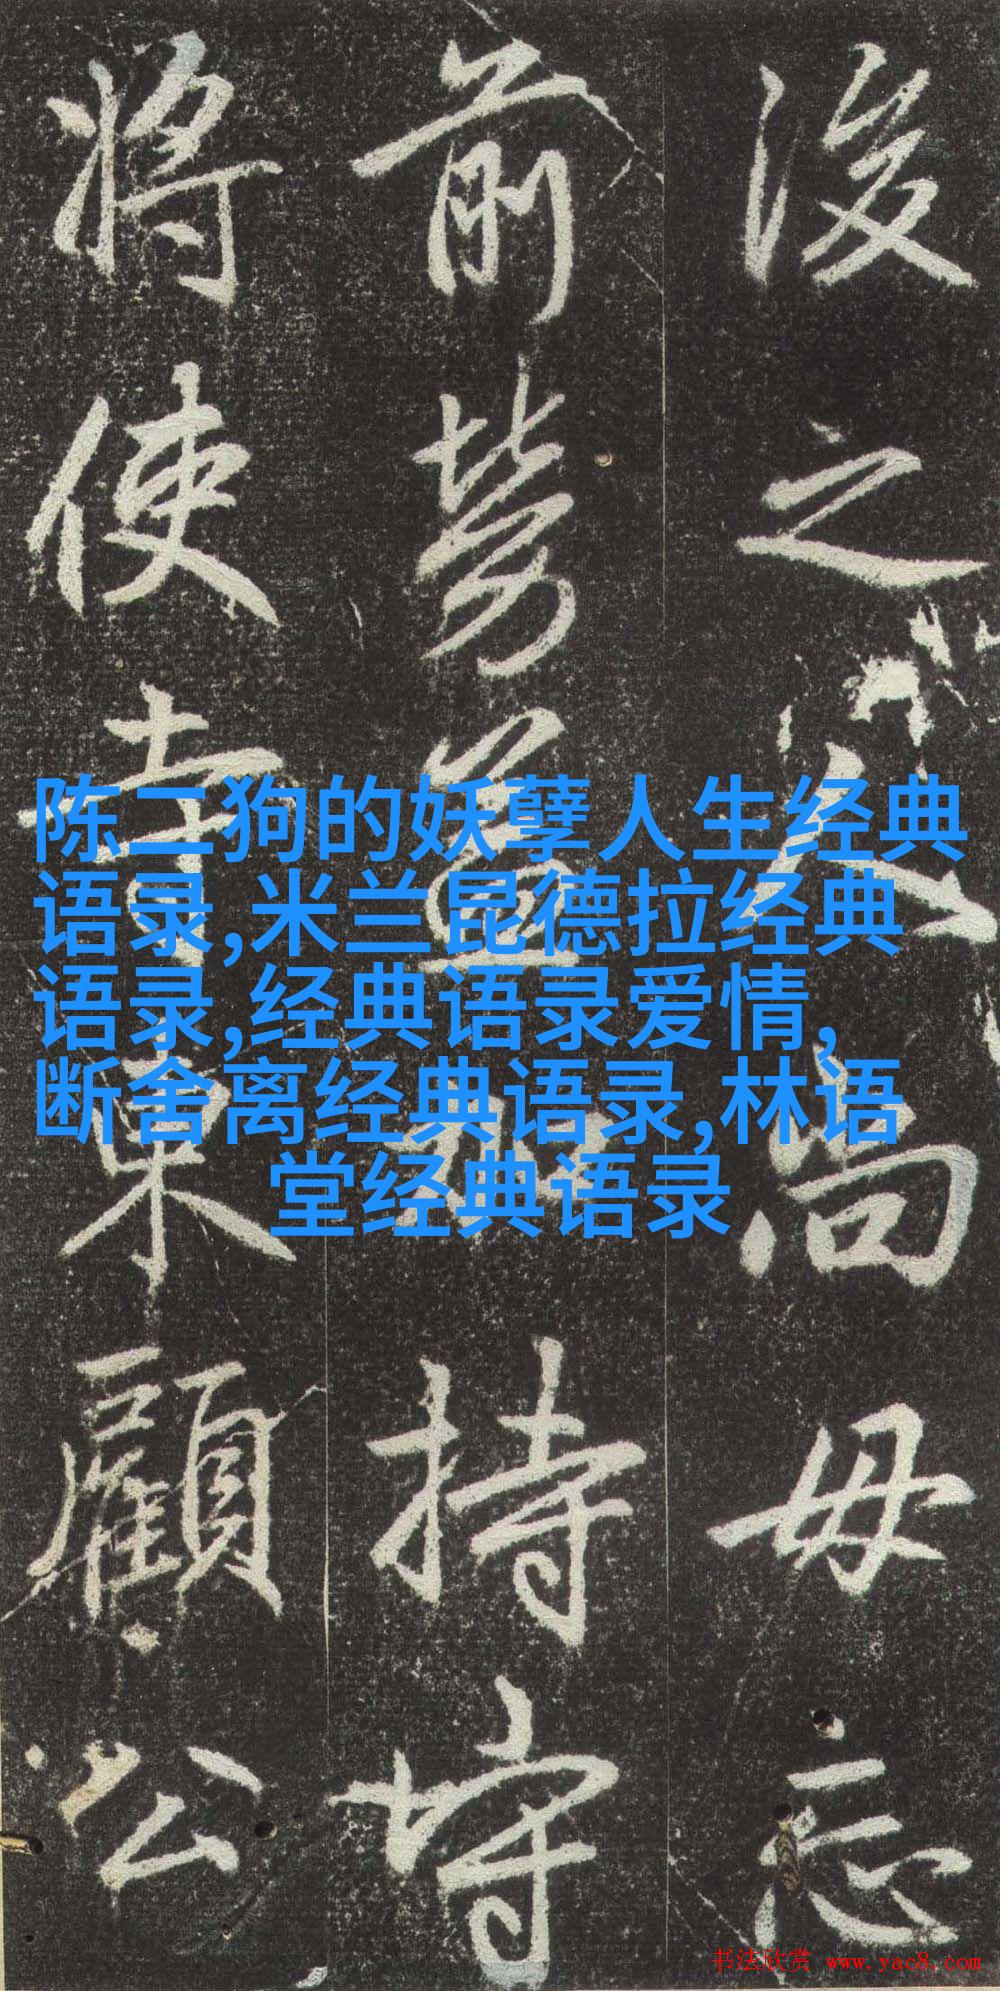 後之人尚毋忘
前勞益持守
將使東顧公
陈二狗的妖孽人生经典
语录,米兰昆德拉经典
语录,经典语录爱情,
断舍离经典语录,林语
堂经典语录
书法欣赏 www.yac8.com